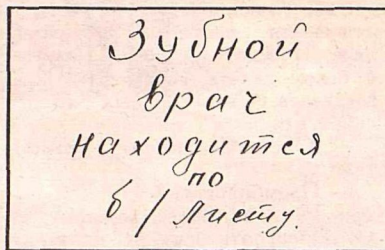 Зубной
врач
находится
по
б/листу.